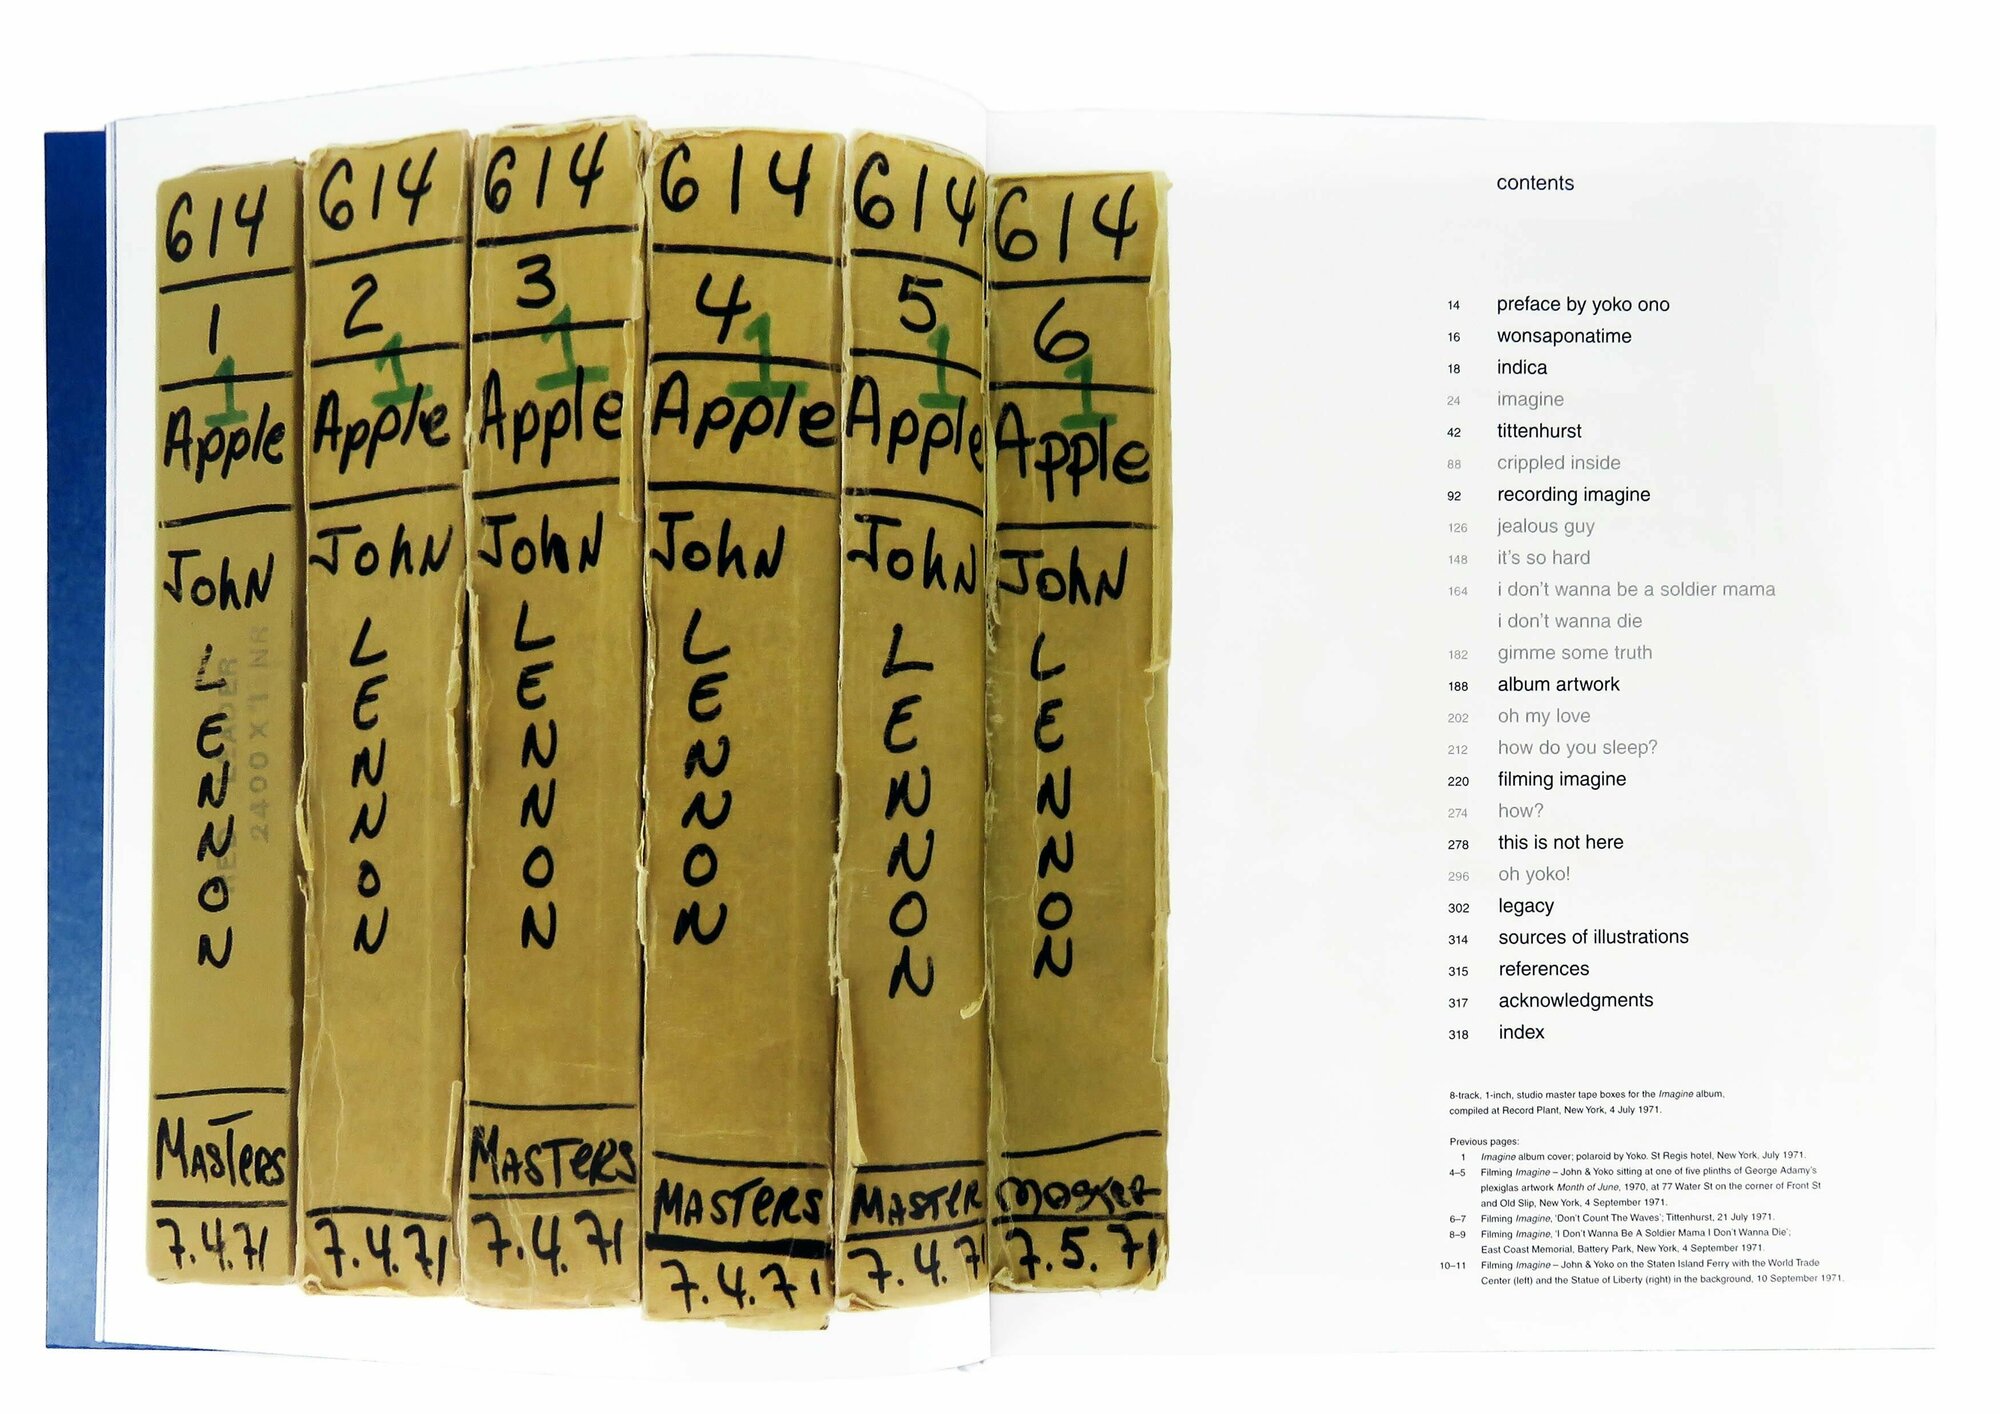 614
1
1
Apple
John
LENNON
REEL LEADER
2400 X 1 NR
Masters
7.4.71
614
2
1
Apple
John
LENNON
7.4.71
614
3
1
Apple
John
LENNON
MASTERS
7.4.71
614
4
1
Apple
John
LENNON
MASTERS
7.4.71
614
5
1
Apple
John
LENNON
MASTER
7.4.71
614
6
1
Apple
John
LENNON
7.5.71
contents
14 preface by yoko ono
16 wonsaponatime
18 indica
24 imagine
42 tittenhurst
88 crippled inside
92 recording imagine
126 jealous guy
148 it's so hard
164 i don't wanna be a soldier mama
i don't wanna die
182 gimme some truth
188 album artwork
202 oh my love
212 how do you sleep?
220 filming imagine
274 how?
278 this is not here
296 oh yoko!
302 legacy
314 sources of illustrations
315 references
317 acknowledgments
318 index
8-track, 1-inch, studio master tape boxes for the Imagine album,
compiled at Record Plant, New York, 4 July 1971.
Previous pages:
1 Imagine album cover; polaroid by Yoko. St Regis hotel, New York, July 1971.
4–5 Filming Imagine – John & Yoko sitting at one of five plinths of George Adamy's
plexiglas artwork Month of June, 1970, at 77 Water St on the corner of Front St
and Old Slip, New York, 4 September 1971.
6–7 Filming Imagine, 'Don't Count The Waves'; Tittenhurst, 21 July 1971.
8–9 Filming Imagine, 'I Don't Wanna Be A Soldier Mama I Don't Wanna Die';
East Coast Memorial, Battery Park, New York, 4 September 1971.
10–11 Filming Imagine – John & Yoko on the Staten Island Ferry with the World Trade
Center (left) and the Statue of Liberty (right) in the background, 10 September 1971.